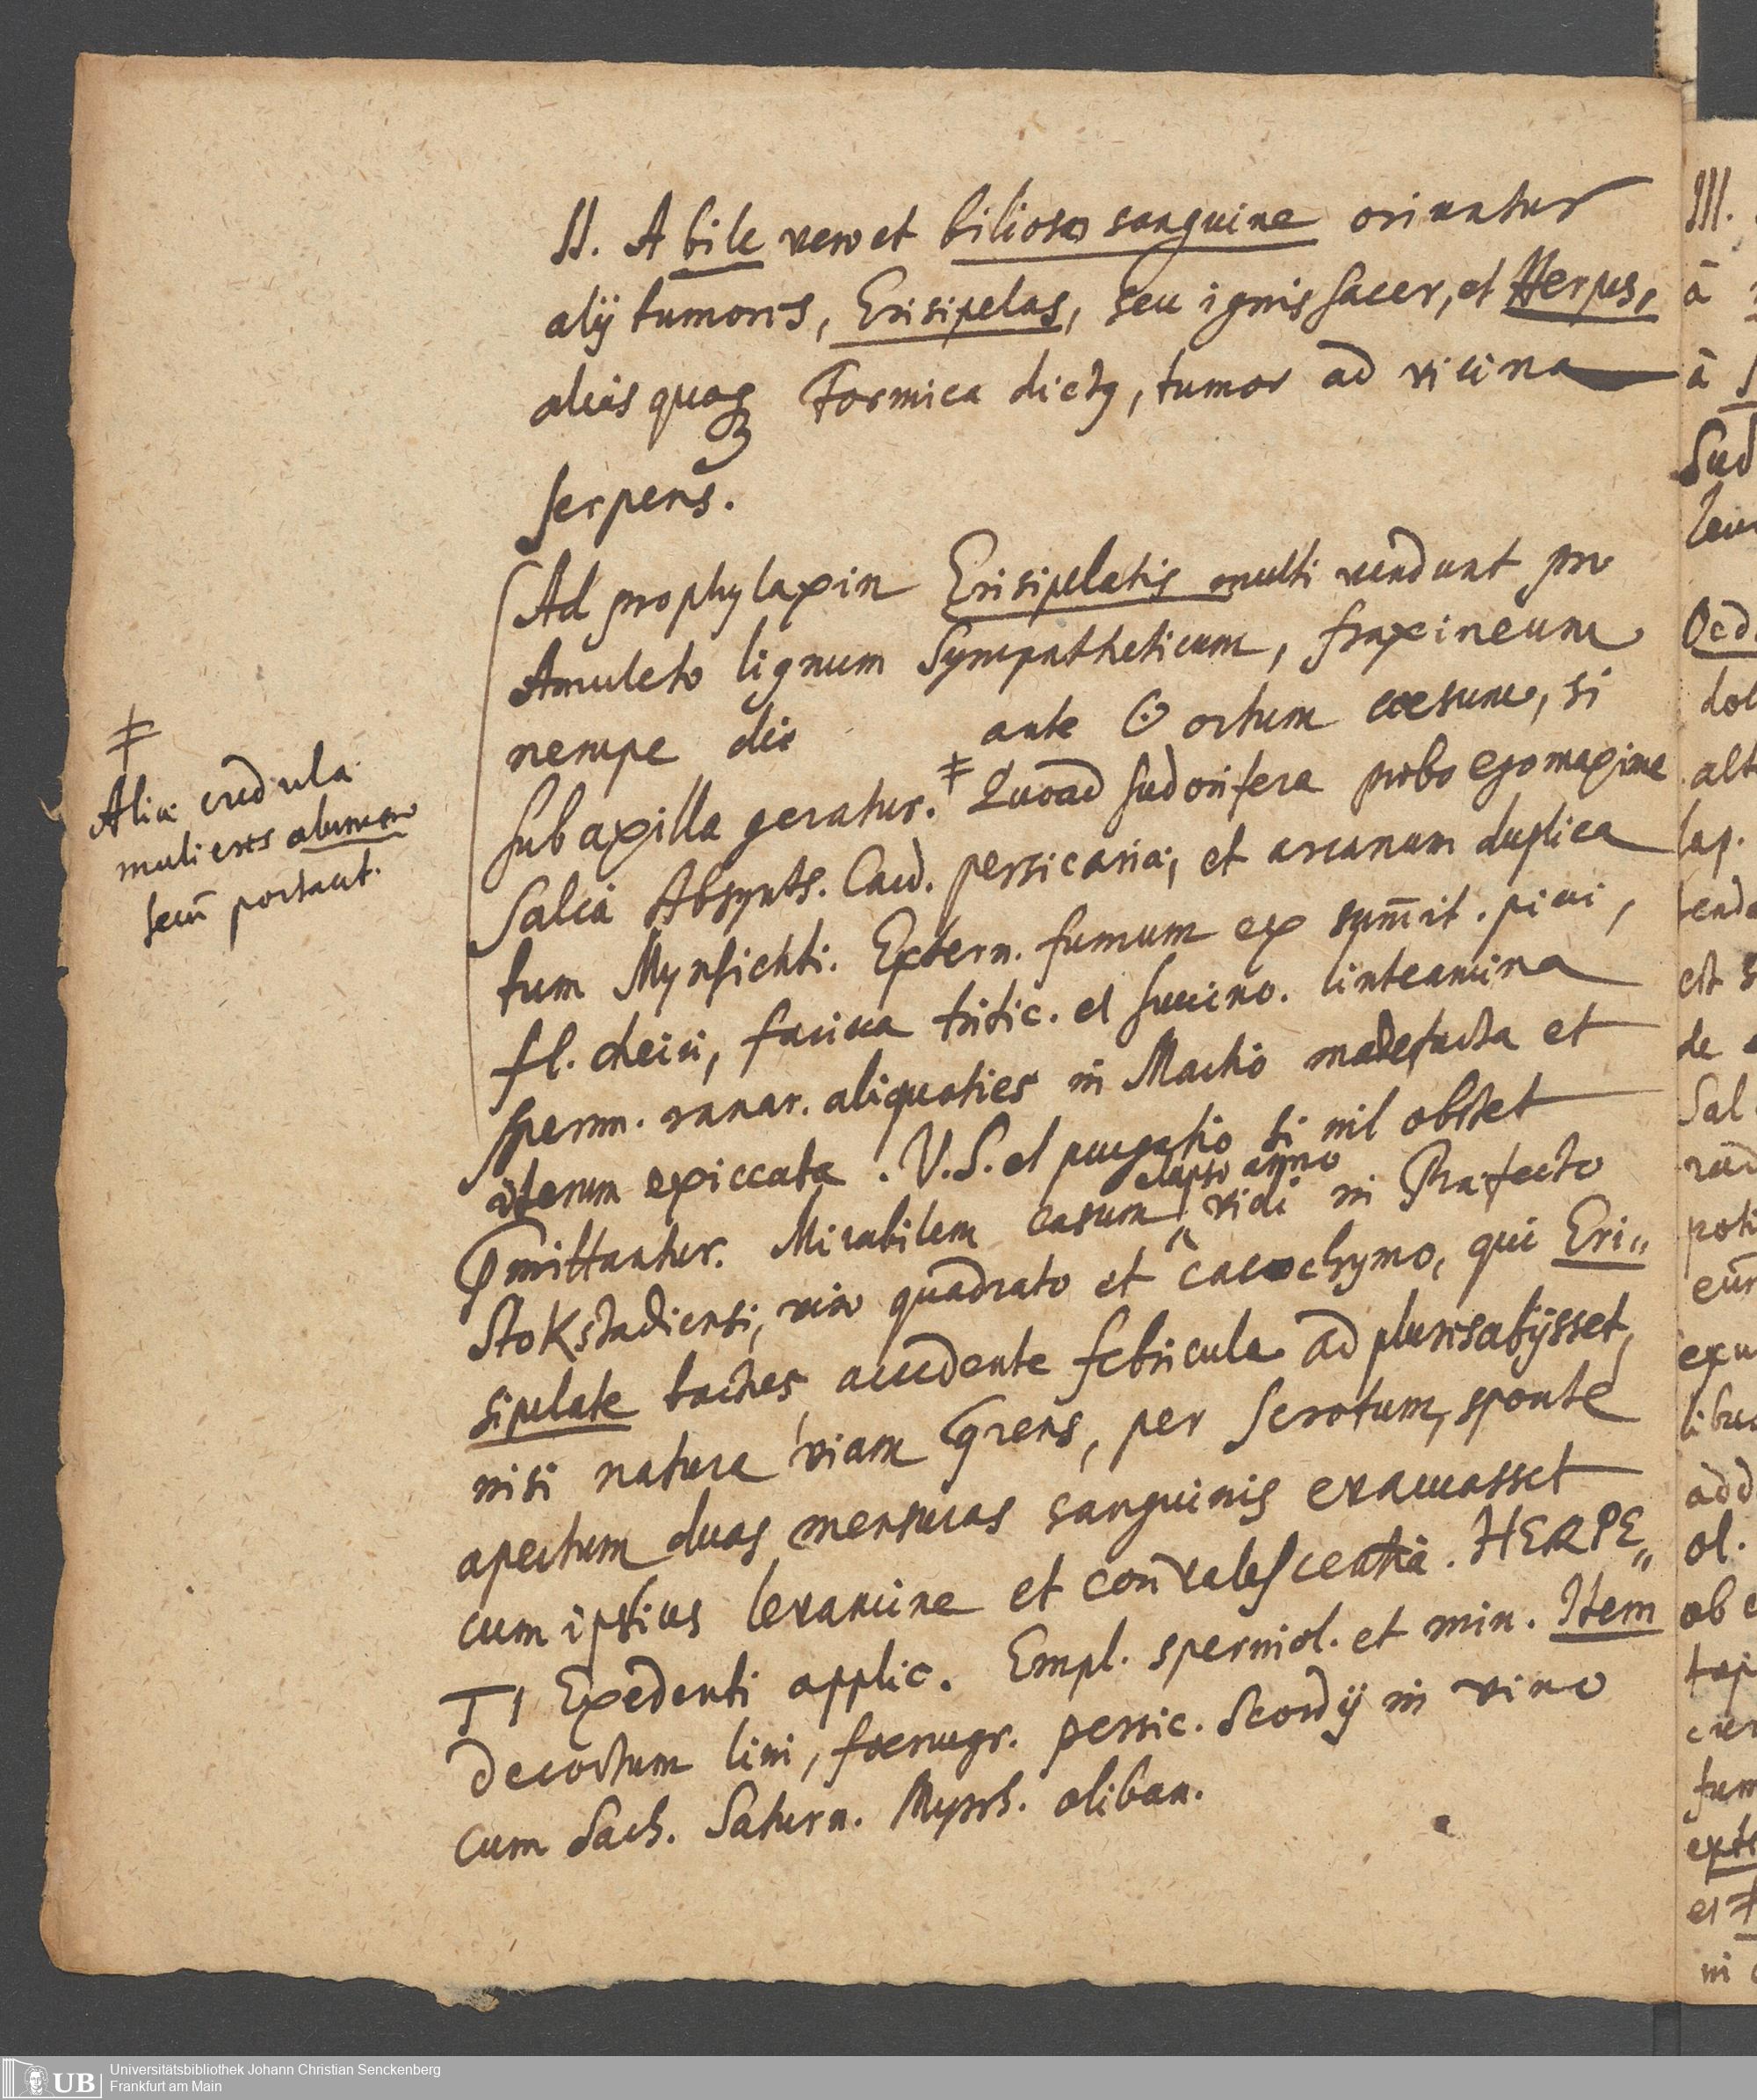 II. A bile vero et bilioso sanguine oriuntur
alij tumores, Erisipelas, seu ignis sacer, et Herpes,
aliàs quoq Formica dictq, tumor ad vicina
serpens.
Ad prophylaxin Erisipelatis multi vendunt pro
Amuleto lignum Sympatheticum, fraxineum
nempe die ante ☉ ortum cæsum, si
sub axilla geratur. ǂ Quoad sudorifera probo ego maxime
Salia Absynth. Card. persicariæ, et arcanum duplica
tum Mynsichti. Extern. fumum ex sum̄it. pini,
fl. cheiri, farina tritic. et succino. linteamina
sperm. ranar. aliquoties in Martio madefacta et
iterum exiccata. V.S. et purgatio si nil obstet
mittantur. Mirabilem casum elapso anno vidi in Præfecto
Stokstadiensi, viro quadrato et cacochymo, qui Eri„
sipelate tactus accedente febricula ad plures abijsset,
nisi natura viam qrens, per scrotum, sponte
apertum duas mensuras sanguinis evacuasset
cum ipsius levamine et convalescentia. HERPE„
TI Exedenti applic. Empl. sperniol. et min. Item
decoctum lini, fœnugr. persic. Scordij in vino
cum Sach. Saturn. Myrrh. oliban.
ǂ
Aliæ credulæ
mulieres alumen
secū portant.
III.
à
à
Sud
Ocd.
dol
alt
lap.
est
de
Sal
poti
libus
add
ol.
ob
Universitätsbibliothek Johann Christian Senckenberg
Frankfurt am Main
UB